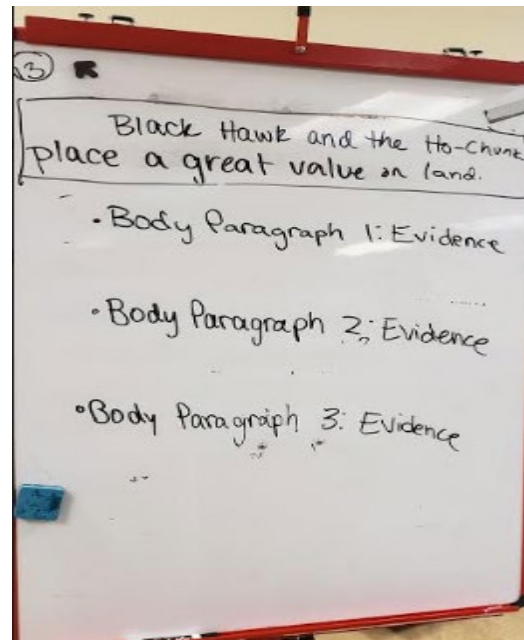 3
Black Hawk and the Ho-Chunk
place a great value on land.
• Body Paragraph 1: Evidence
• Body Paragraph 2: Evidence
• Body Paragraph 3: Evidence